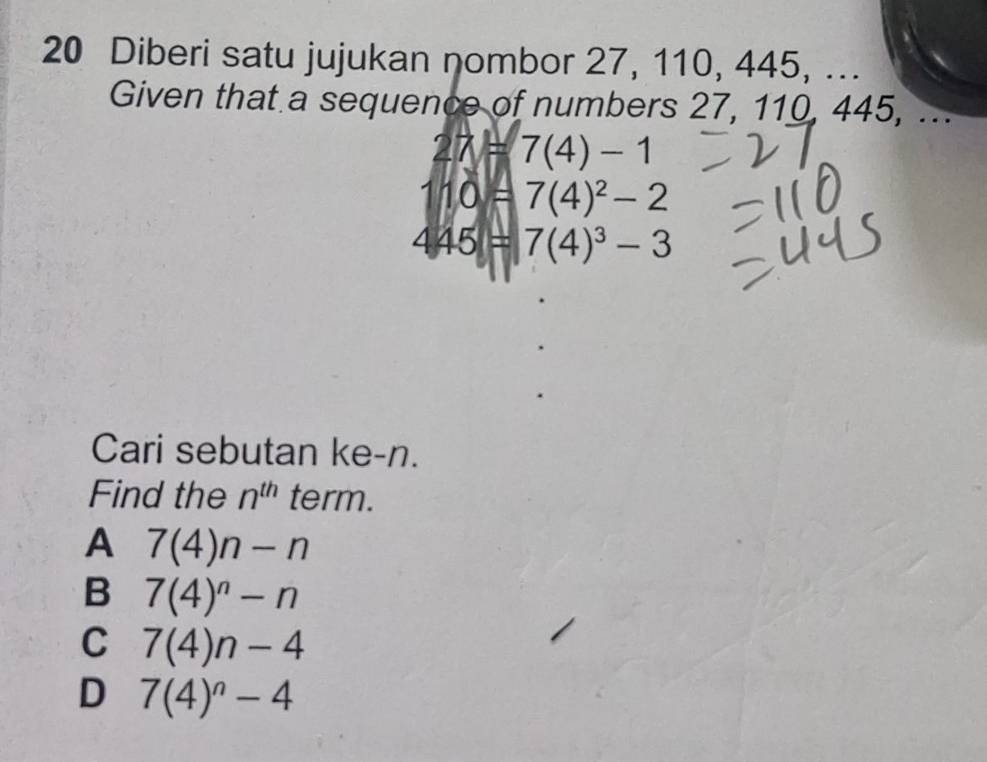 20 Diberi satu jujukan nombor 27, 110, 445, ...
Given that a sequence of numbers 27, 110, 445, ...
27 = 7(4) – 1 = 27
110 = 7(4)² – 2 = 110
445 = 7(4)³ – 3 = 445
.
.
.
Cari sebutan ke-n.
Find the nᵗʰ term.
A 7(4)n – n
B 7(4)ⁿ – n
C 7(4)n – 4
D 7(4)ⁿ – 4